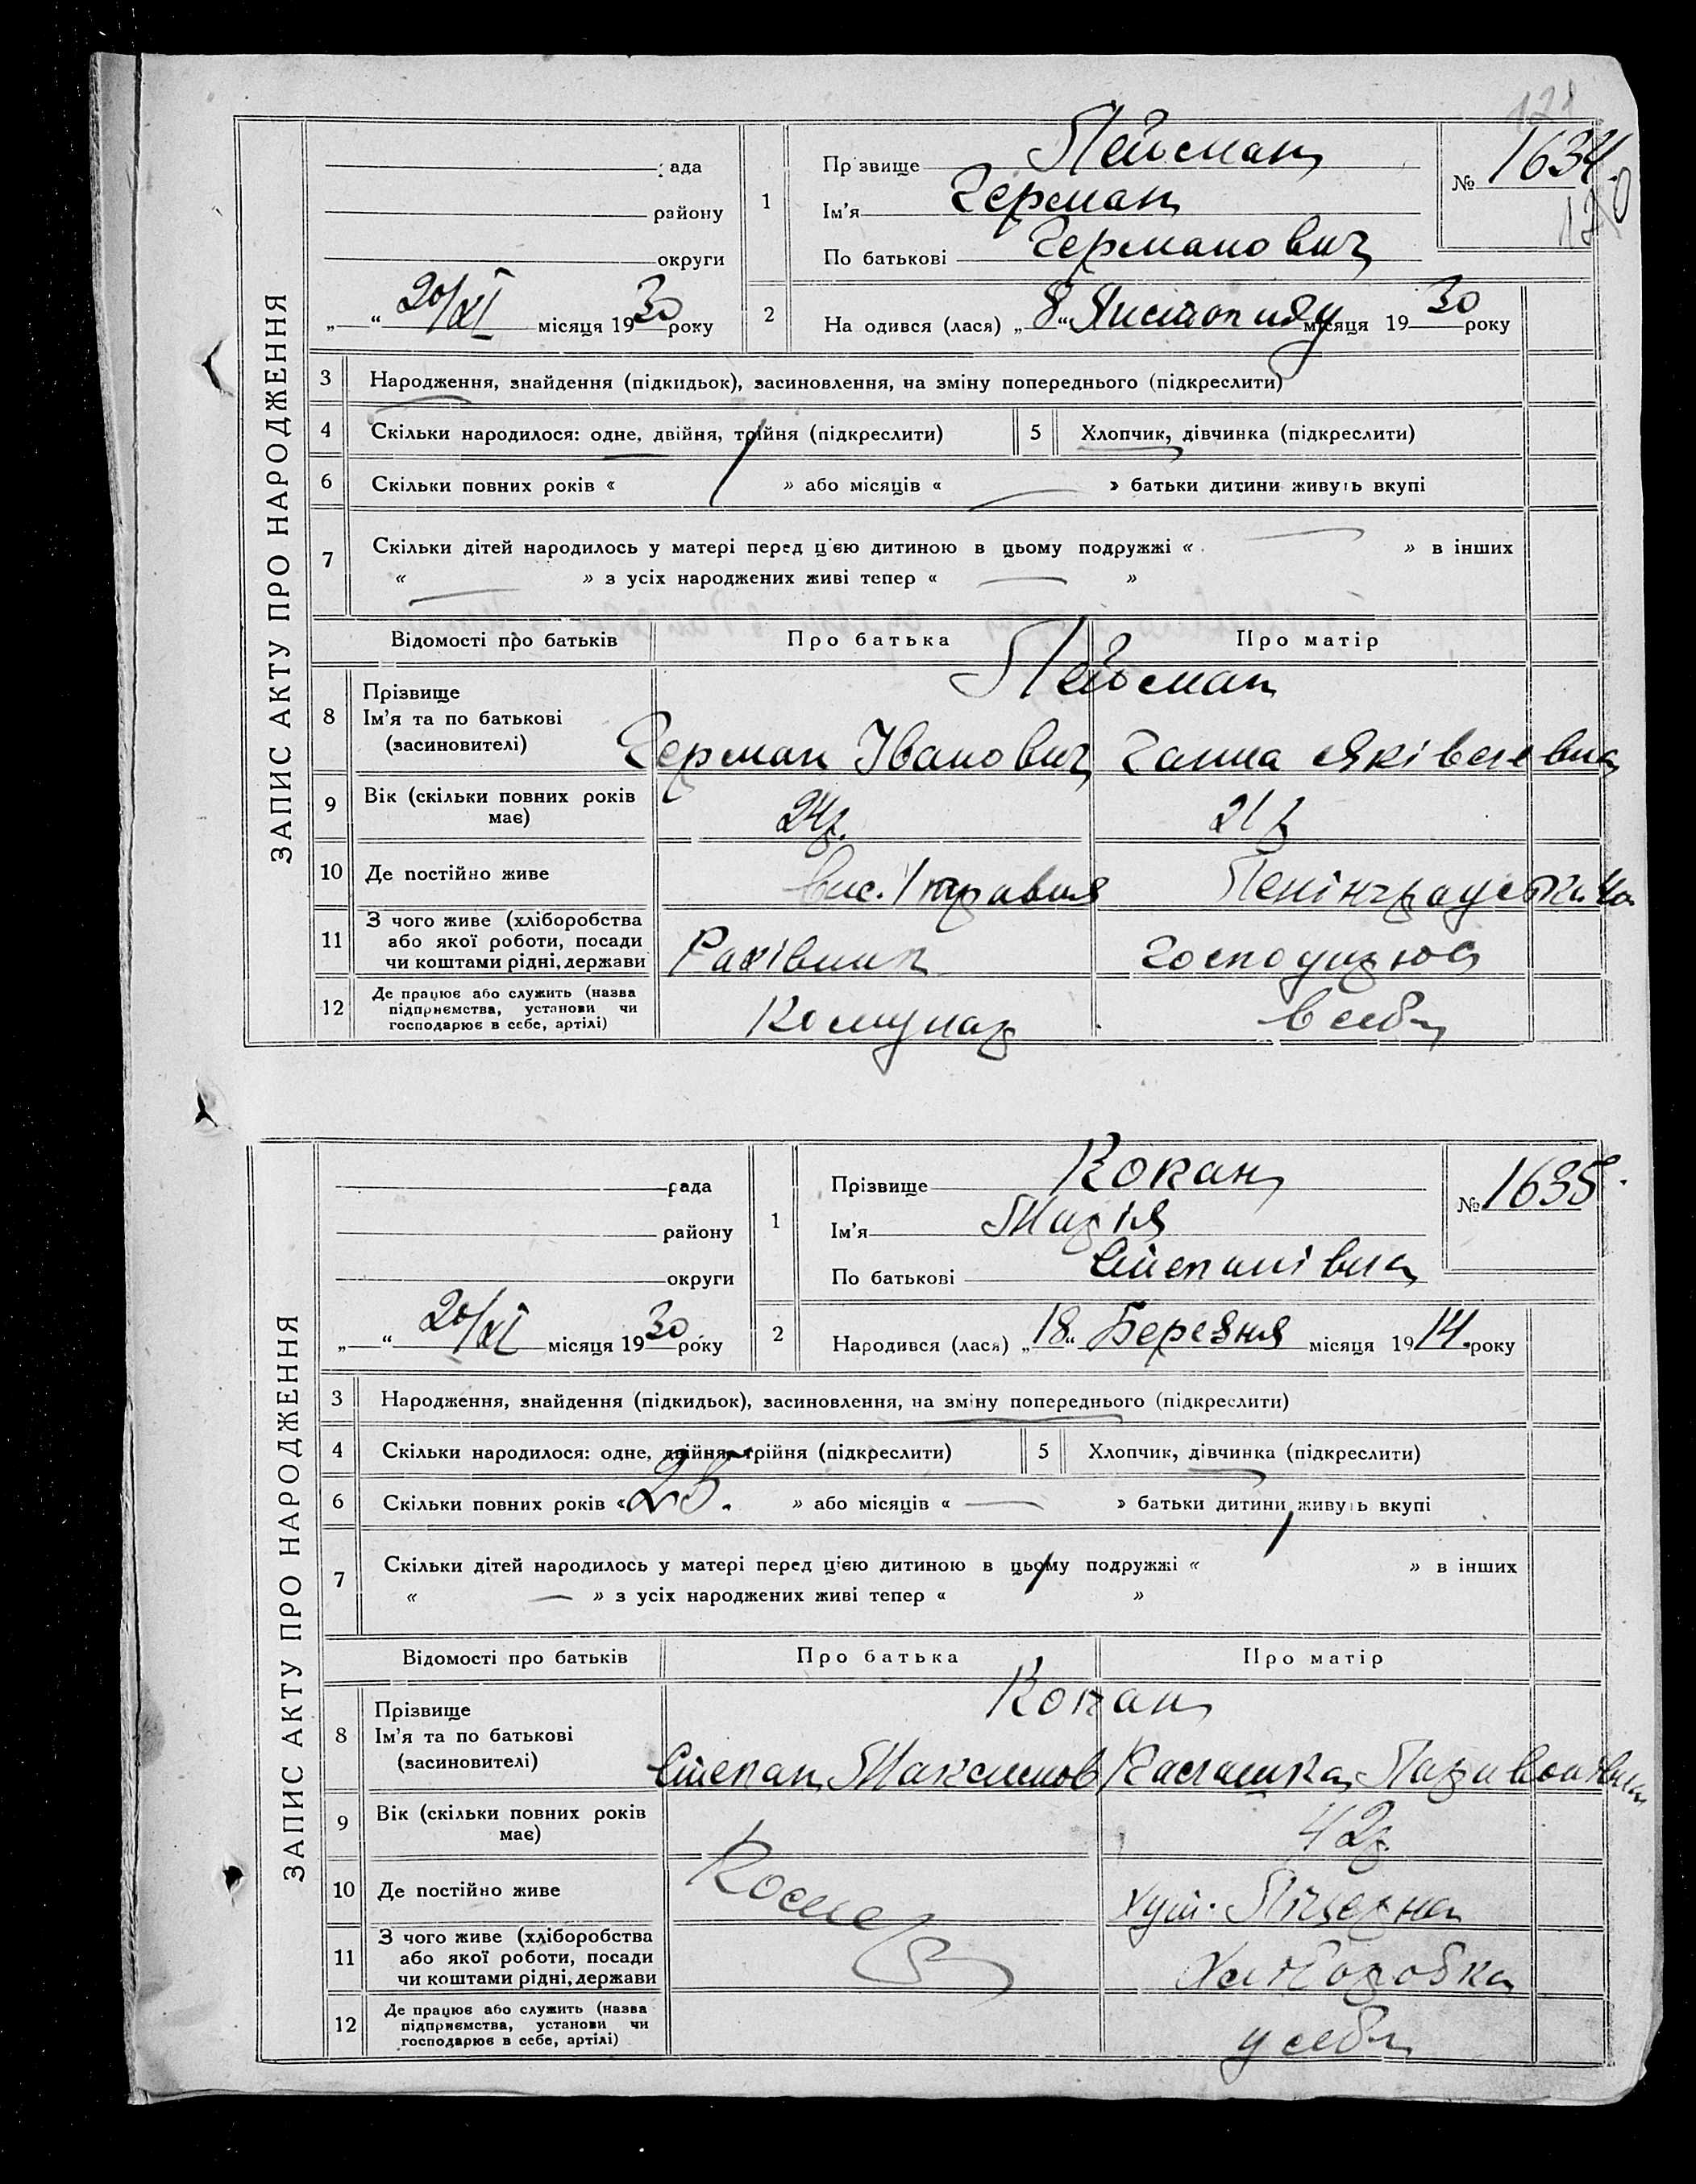 121
ЗАПИС АКТУ ПРО НАРОДЖЕННЯ
рада
району
округи
„ “ 20/XI місяця 1930 року
1
Прізвище Пейсман
Ім’я Герман
По батькові Германович
№ 1634.
120
2
На одився (лася) „8“ Листопаду місяця 1930 року
3 Народження, знайдення (підкидьок), засиновлення, на зміну попереднього (підкреслити)
4 Скільки народилося: одне, двійня, трійня (підкреслити)
5 Хлопчик, дівчинка (підкреслити)
6 Скільки повних років « » або місяців « — » батьки дитини живуть вкупі
7 Скільки дітей народилось у матері перед цією дитиною в цьому подружжі « — » в інших
« — » з усіх народжених живі тепер « — »
Відомості про батьків Про батька Про матір
8 Прізвище
Ім’я та по батькові
(засиновителі)
Пейсман
Герман Іванович Ганна Яківлевна
9 Вік (скільки повних років
має)
24р. 21р
10 Де постійно живе
вис. 1 травня
11 З чого живе (хліборобства
або якої роботи, посади
чи коштами рідні, держави
Рахівник
12 Де працює або служить (назва
підприємства, установи чи
господарює в себе, артілі)
Комунар в себе
ЗАПИС АКТУ ПРО НАРОДЖЕННЯ
рада
району
округи
„ “ 20/XI місяця 1930 року
1
Прізвище Кокан
Ім’я Марія
По батькові Степанівна
№ 1635.
2
Народився (лася) „18“ Березня місяця 1914. року
3 Народження, знайдення (підкидьок), засиновлення, на зміну попереднього (підкреслити)
4 Скільки народилося: одне, двійня, трійня (підкреслити)
5 Хлопчик, дівчинка (підкреслити)
6 Скільки повних років «25. » або місяців « — » батьки дитини живуть вкупі
7 Скільки дітей народилось у матері перед цією дитиною в цьому подружжі « » в інших
« — » з усіх народжених живі тепер « »
Відомості про батьків Про батька Про матір
8 Прізвище
Ім’я та по батькові
(засиновителі)
Кокан
Степан Максимов
9 Вік (скільки повних років
має)
42р.
10 Де постійно живе
Помер
хут.
11 З чого живе (хліборобства
або якої роботи, посади
чи коштами рідні, держави
Хліборобка
12 Де працює або служить (назва
підприємства, установи чи
господарює в себе, артілі)
у себе